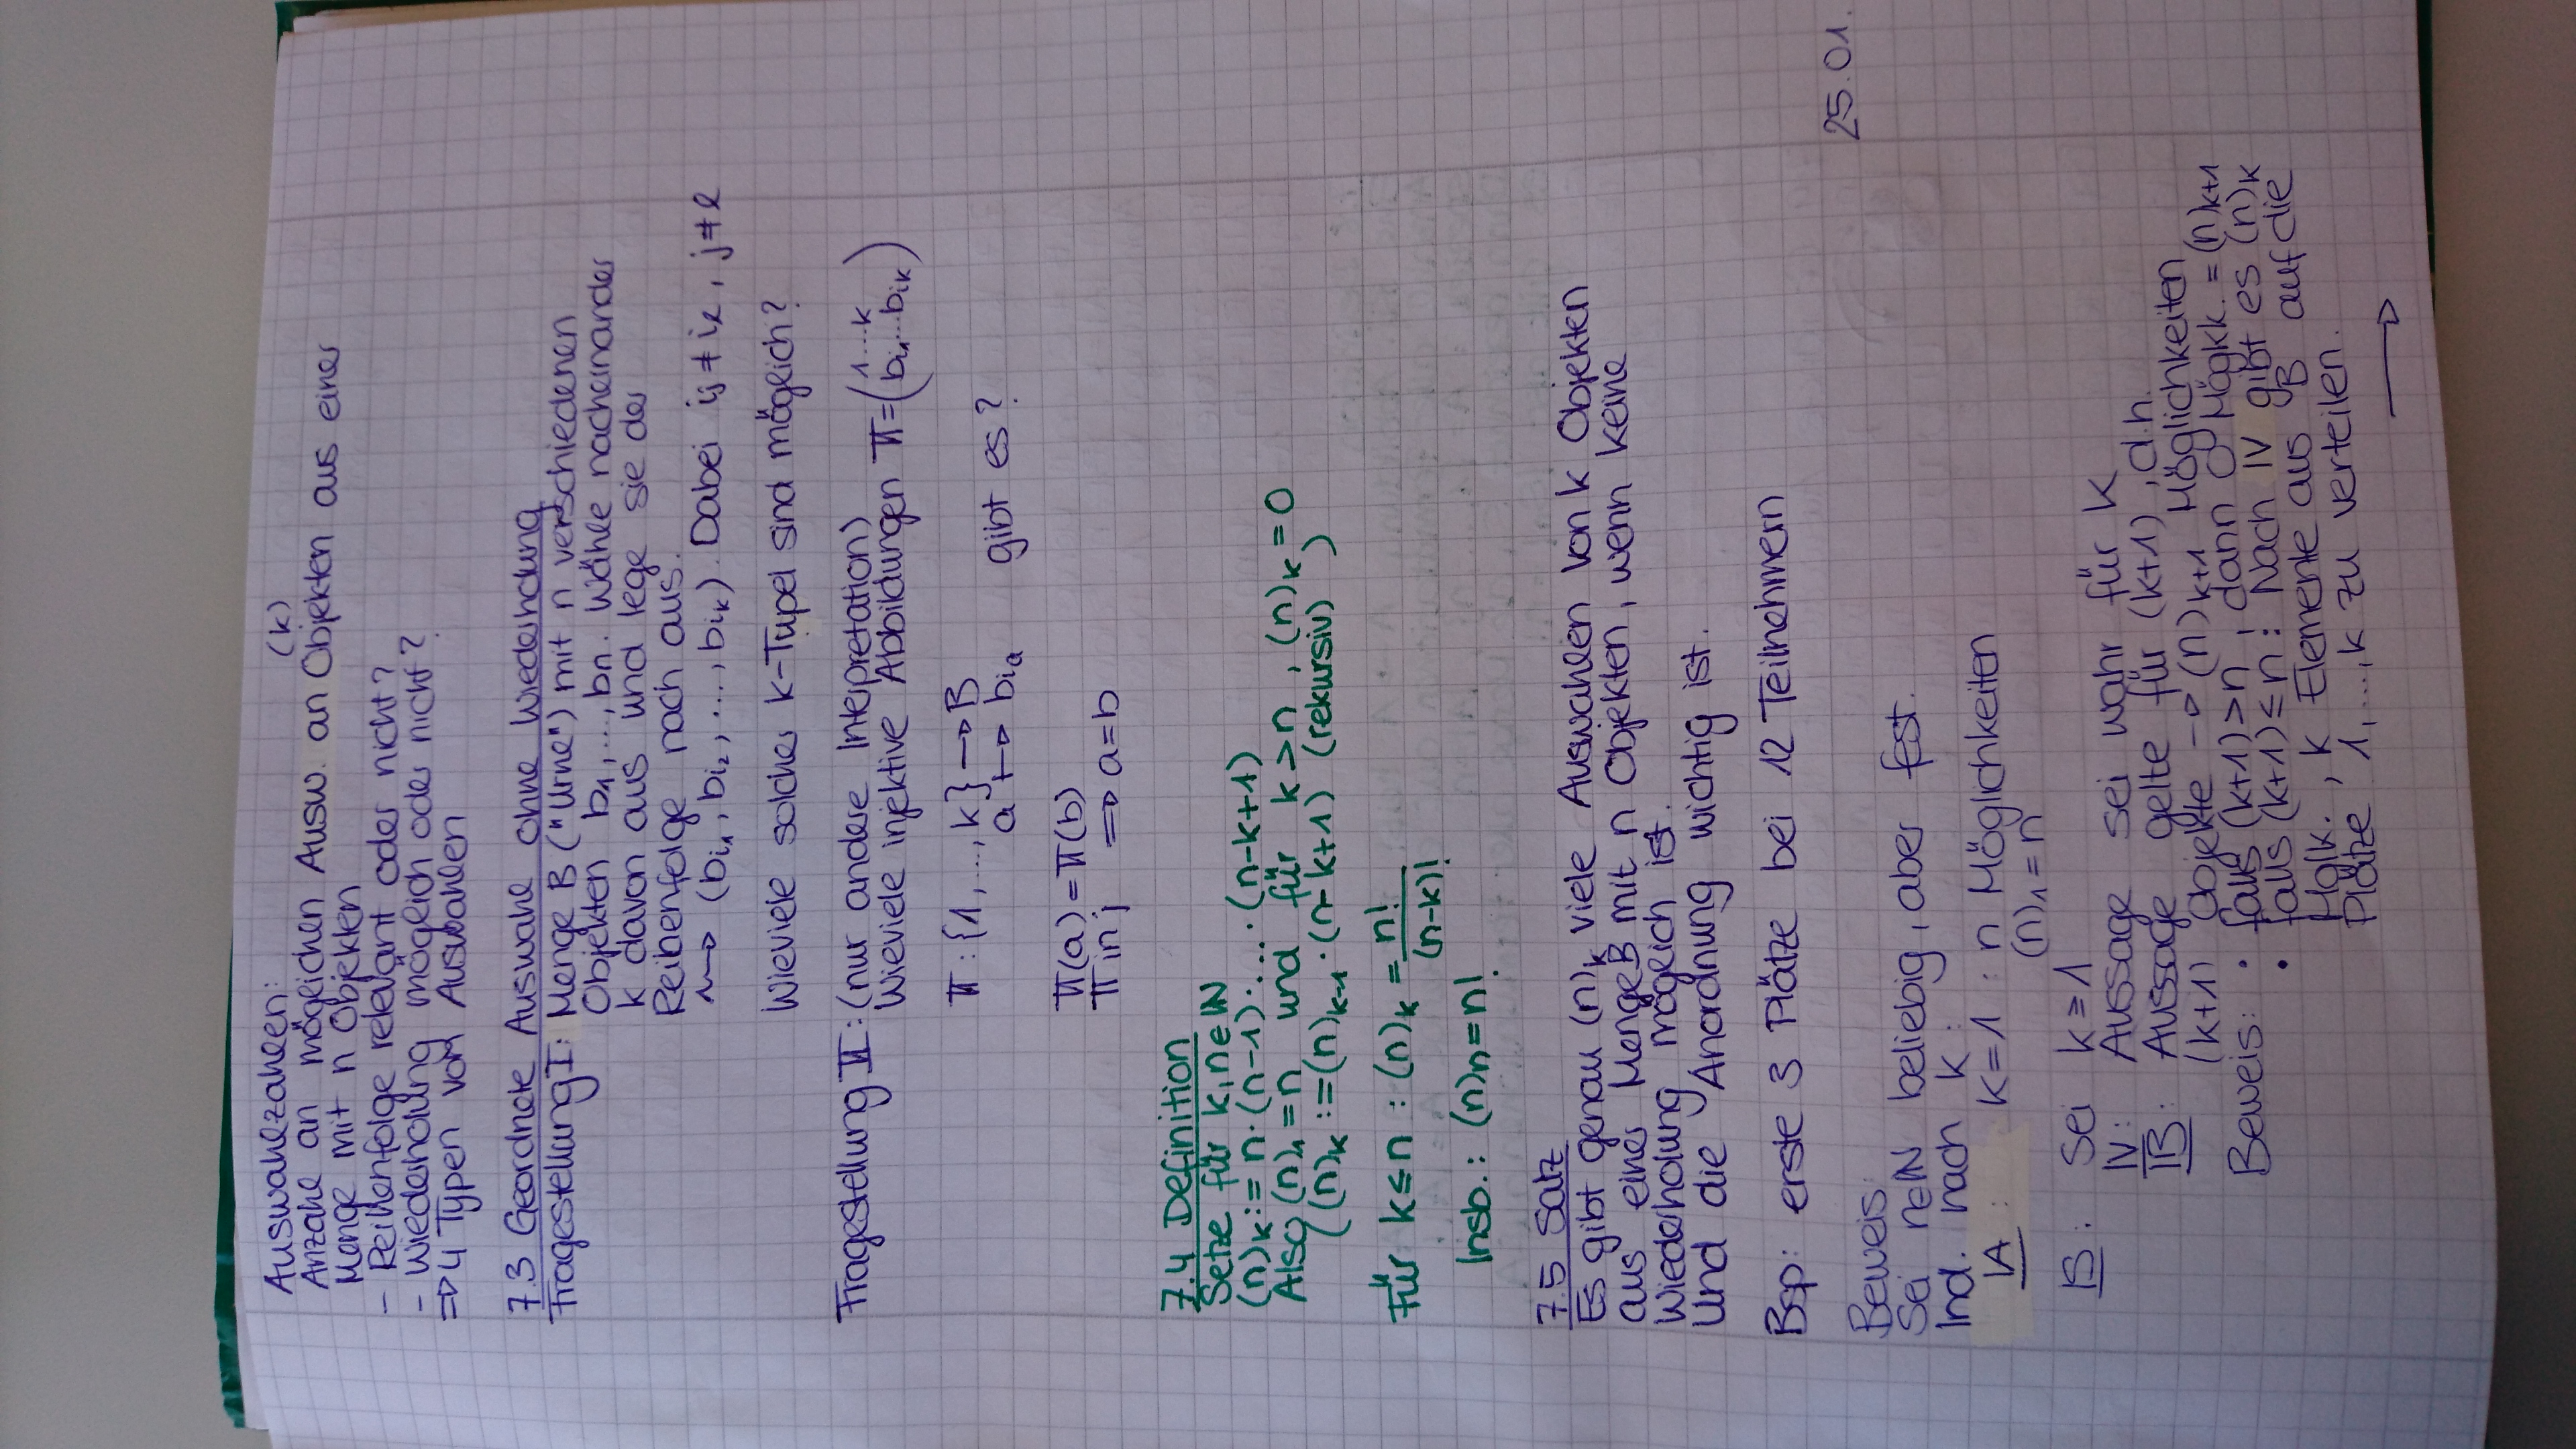 Auswahlzahlen:
(k)
Anzahl an möglichen Ausw. an Objekten aus einer
Menge mit n Objekten
- Reihenfolge relevant oder nicht?
- Wiederholung möglich oder nicht?
⇒ 4 Typen von Auswahlen
7.3 Geordnete Auswahl ohne Wiederholung
Fragestellung I: Menge B ("Urne") mit n verschiedenen
Objekten b₁,...,bn. Wähle nacheinander
k davon aus und lege sie der
Reihenfolge nach aus.
⇝ (b_{i₁}, b_{i₂}, ..., b_{i_k}). Dabei i_j ≠ i_ℓ, j ≠ ℓ
Wieviele solcher k-Tupel sind möglich?
Fragestellung II: (nur andere Interpretation)
Wieviele injektive Abbildungen π = (1...k / b_{i₁}...b_{i_k})
π: {1,...,k} → B
a ↦ b_{i_a} gibt es?
π(a) = π(b)
π inj ⇒ a=b
7.4 Definition
Setze für k,n∈ℕ
(n)_k := n·(n-1)·...·(n-k+1)
Also (n)₁ = n und für k > n, (n)_k = 0
((n)_k := (n)_{k-1}·(n-k+1) (rekursiv) )
Für k ≤ n : (n)_k = n!/(n-k)!
Insb.: (n)_n = n!
7.5 Satz
Es gibt genau (n)_k viele Auswahlen von k Objekten
aus einer Menge B mit n Objekten, wenn keine
Wiederholung möglich ist.
Und die Anordnung wichtig ist.
Bsp: erste 3 Plätze bei 12 Teilnehmern
25.01.
Beweis:
Sei n∈ℕ beliebig, aber fest.
Ind. nach k:
IA: k=1 : n Möglichkeiten
(n)₁ = n
IS: Sei k ≥ 1
IV: Aussage sei wahr für k
IB: Aussage gelte für (k+1), d.h.
(k+1) Objekte → (n)_{k+1} Möglichkeiten
Beweis: • falls (k+1)>n, dann 0 Mögkk. = (n)_{k+1}
• falls (k+1)≤n: Nach IV gibt es (n)_k
Mglk., k Elemente aus B auf die
Plätze 1,...,k zu verteilen.
→